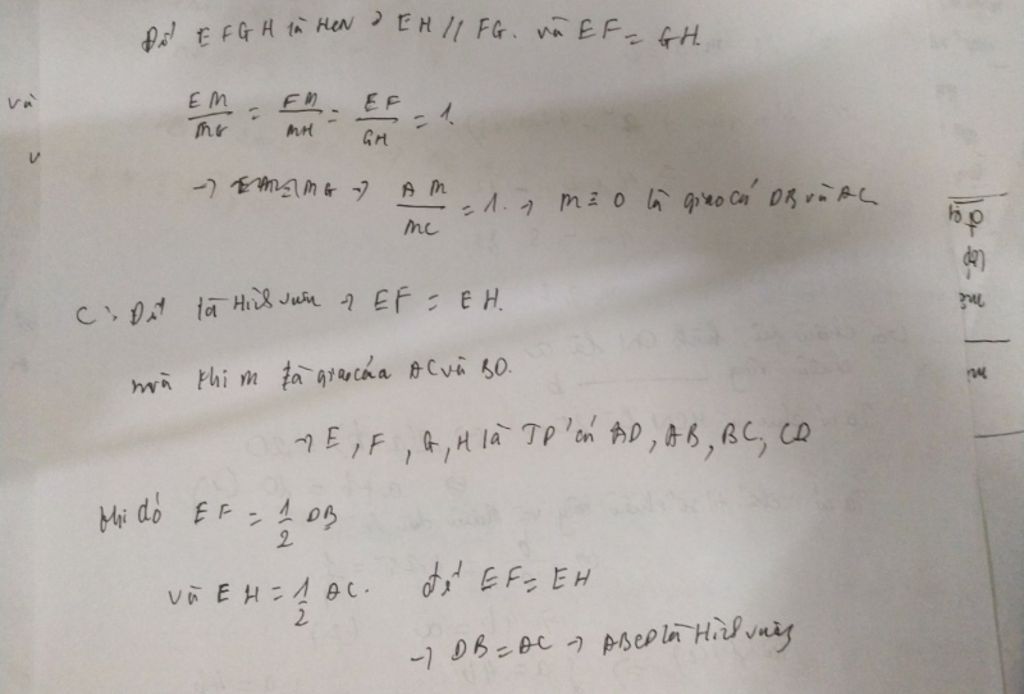 Để EFGH là HCN → EH // FG. và EF = GH.
và
EM/MG = FM/MH = EF/GH = 1.
→ EM = MG → AM/MC = 1. → M ≡ O là giao của DB và AC
C: Để là Hình vuông → EF = EH.
mà khi M là giao của AC và BD.
→ E, F, G, H là TĐ của AD, AB, BC, CD
khi đó EF = 1/2 DB
và EH = 1/2 AC. để EF = EH
→ DB = AC → ABCD là Hình vuông